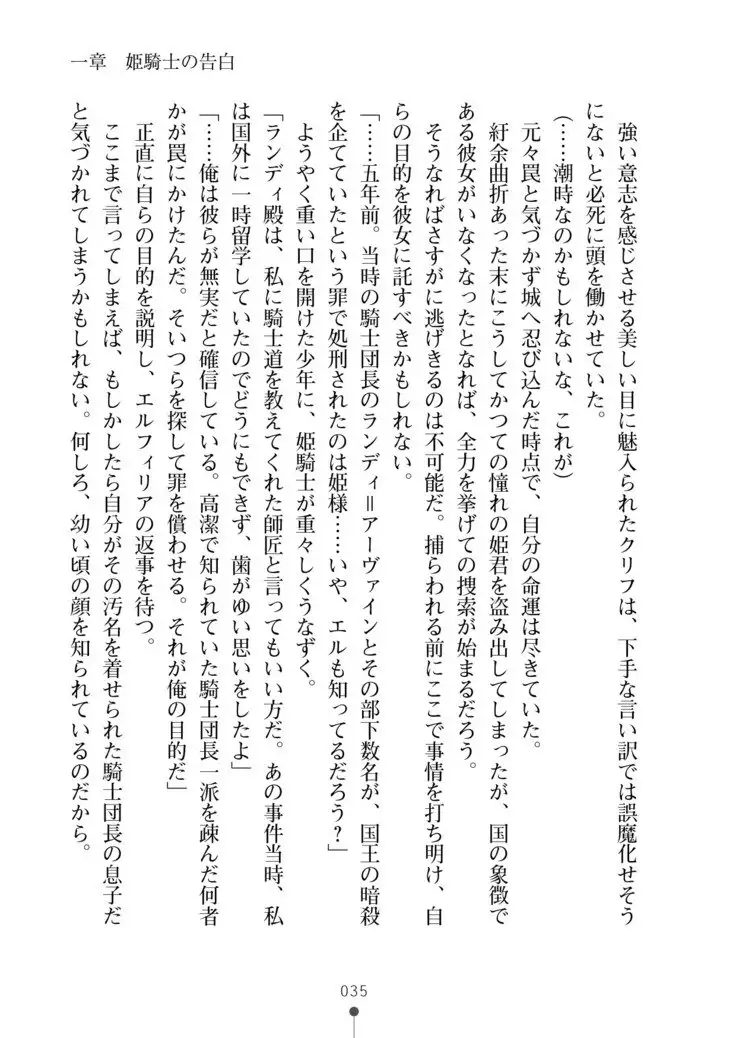 一章　姫騎士の告白
強い意志を感じさせる美しい目に魅入られたクリフは、下手な言い訳では誤魔化せそう
にないと必死に頭を働かせていた。
(……潮時なのかもしれないな、これが)
元々罠と気づかず城へ忍び込んだ時点で、自分の命運は尽きていた。
紆余曲折あった末にこうしてかつての憧れの姫君を盗み出してしまったが、国の象徴で
ある彼女がいなくなったとなれば、全力を挙げての捜索が始まるだろう。
そうなればさすがに逃げきるのは不可能だ。捕らわれる前にここで事情を打ち明け、自
らの目的を彼女に託すべきかもしれない。
「……五年前。当時の騎士団長のランディ＝アーヴァインとその部下数名が、国王の暗殺
を企てていたという罪で処刑されたのは姫様……いや、エルも知ってるだろう？」
ようやく重い口を開けた少年に、姫騎士が重々しくうなずく。
「ランディ殿は、私に騎士道を教えてくれた師匠と言ってもいい方だ。あの事件当時、私
は国外に一時留学していたのでどうにもできず、歯がゆい思いをしたよ」
「……俺は彼らが無実だと確信している。高潔で知られていた騎士団長一派を疎んだ何者
かが罠にかけたんだ。そいつらを探して罪を償わせる。それが俺の目的だ」
正直に自らの目的を説明し、エルフィリアの返事を待つ。
ここまで言ってしまえば、もしかしたら自分がその汚名を着せられた騎士団長の息子だ
と気づかれてしまうかもしれない。何しろ、幼い頃の顔を知られているのだから。
035